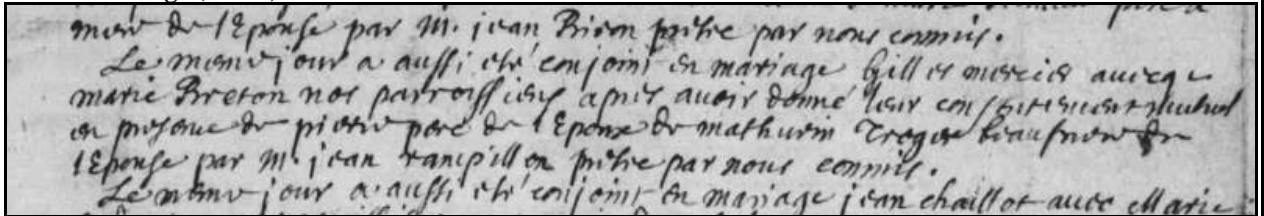 mere de l'Epouse par M. jean Biron prêtre par nous commis.
Le meme jour a aussi eté conjoint en mariage Gilles mercier avecque
marie Breton nos parroissiens apres avoir donné leur consentement mutuel
en presence de pierre pere de l'Epoux de mathurin Troger beaufrere de
l'Epouse par m. jean rampillon prêtre par nous commis.
Le meme jour a aussi eté conjoint en mariage jean chaillot avec Marie